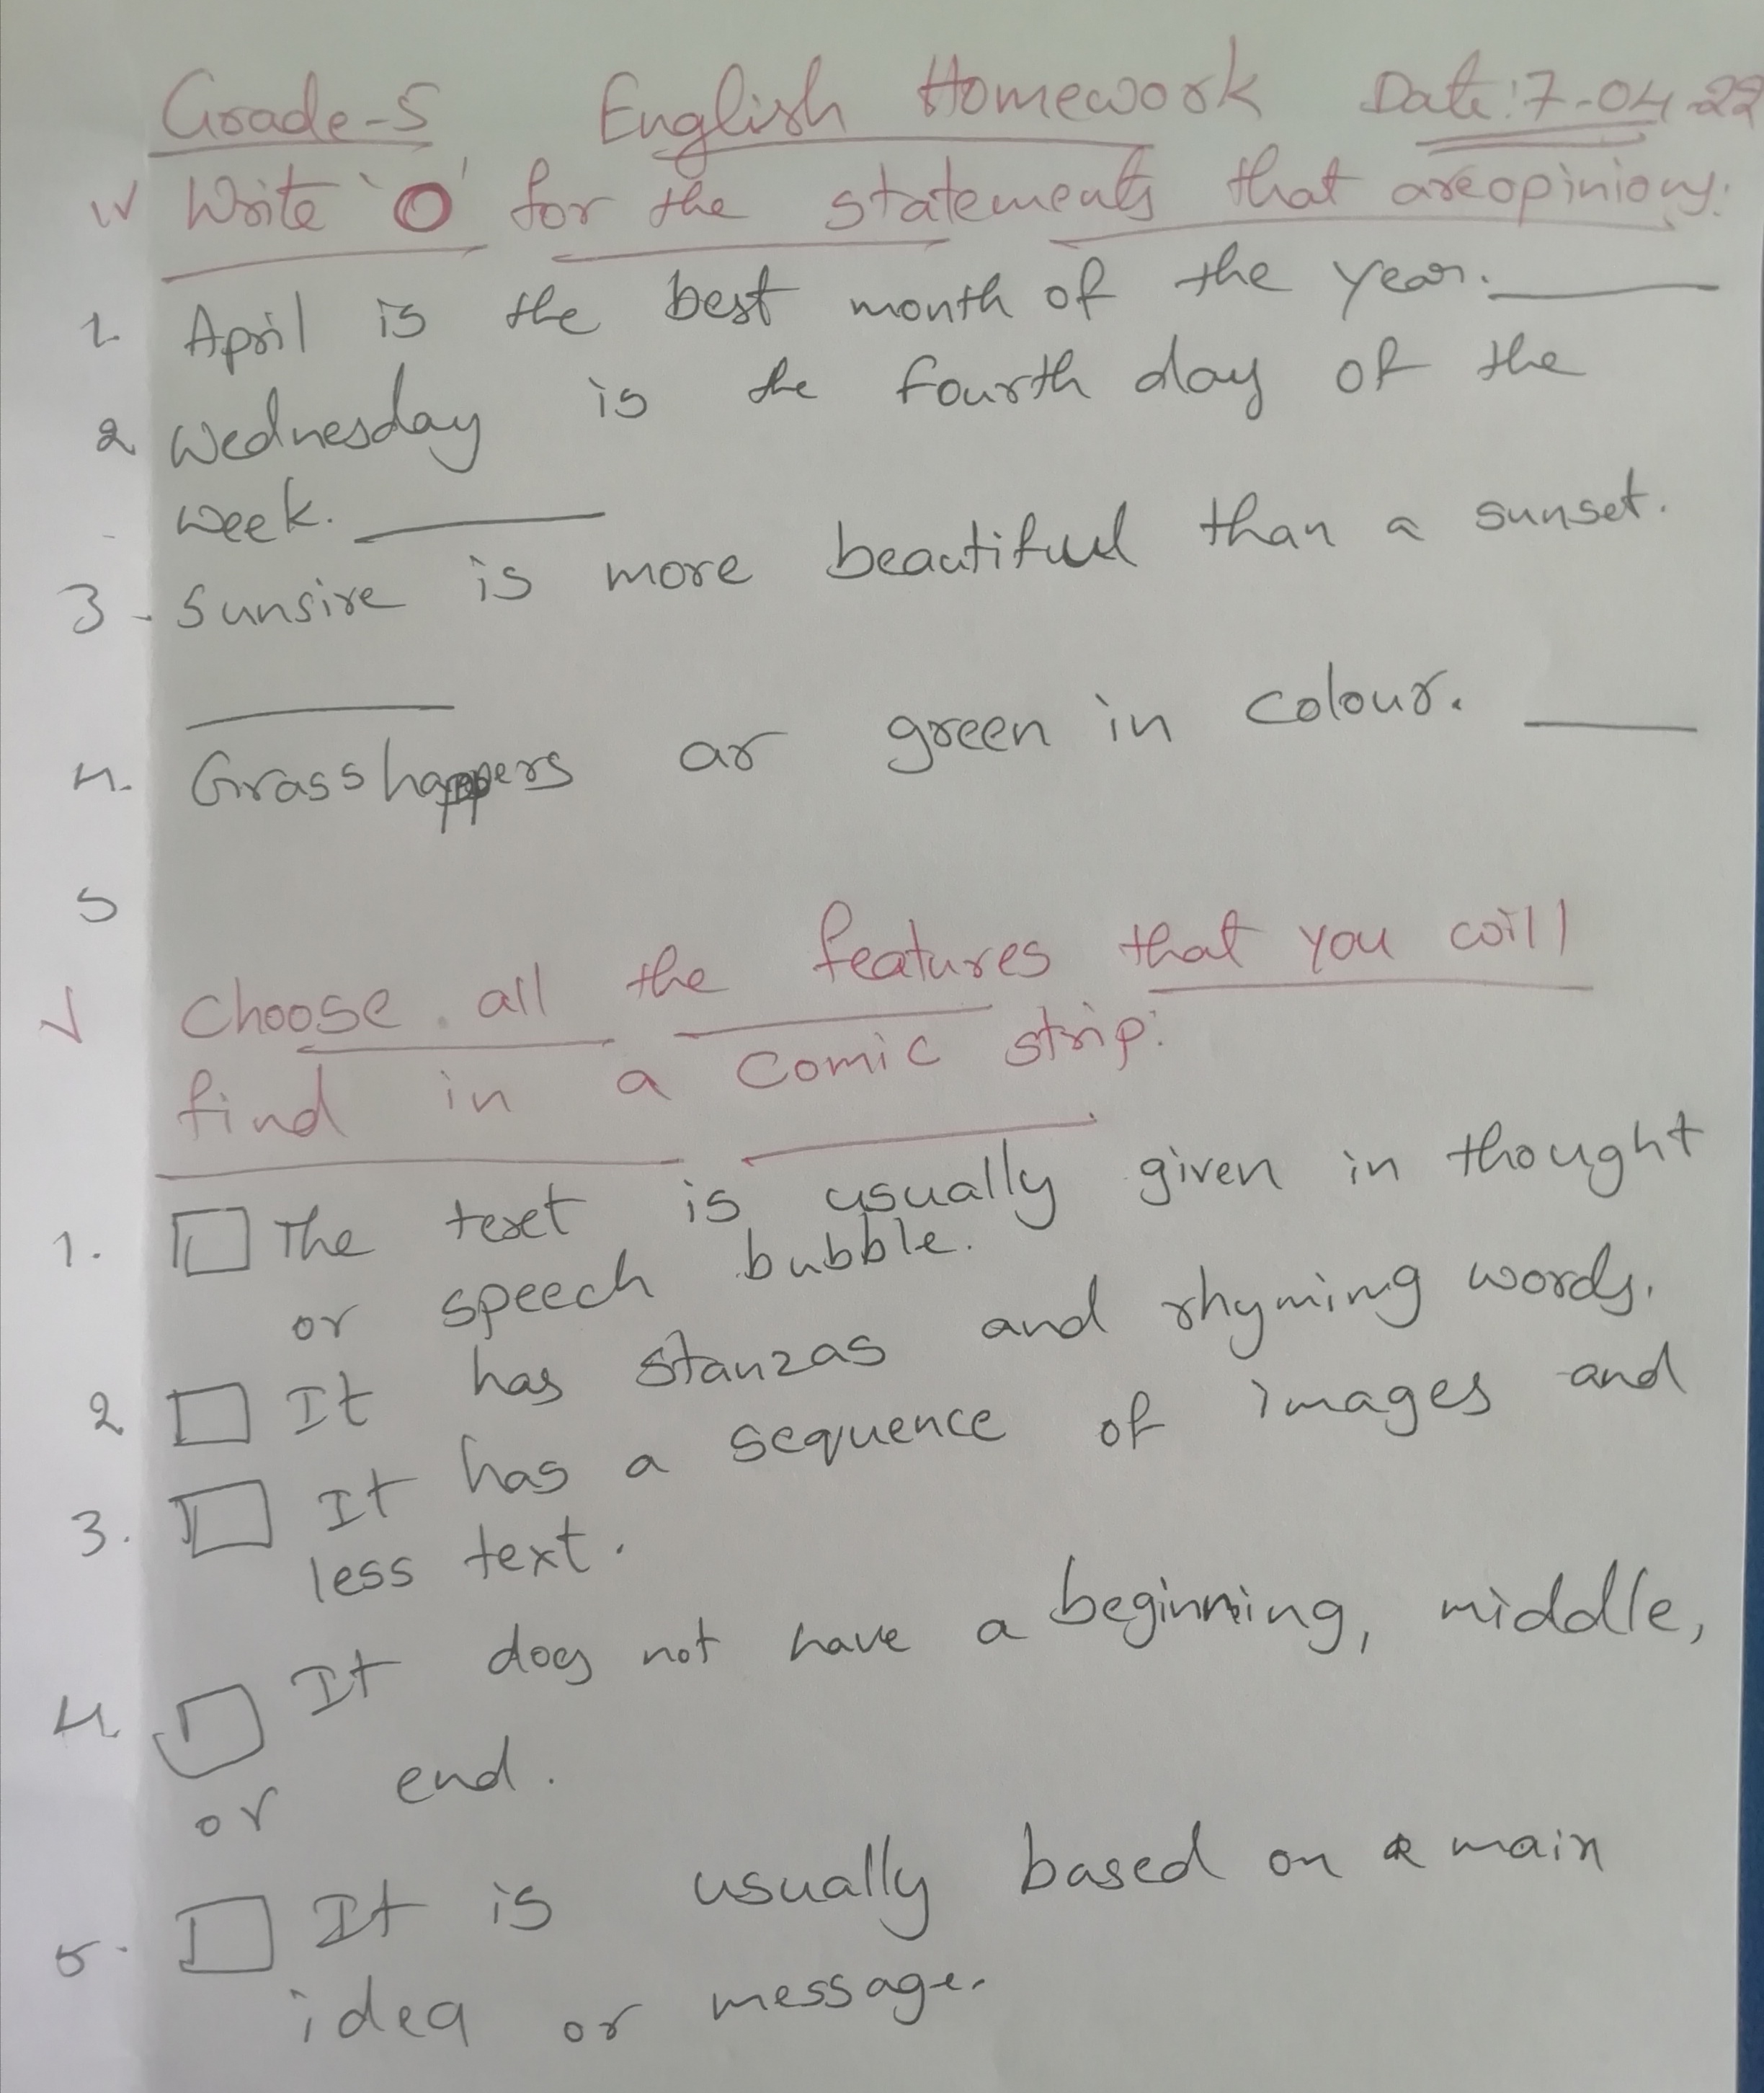 Grade-5 English Homework Date: 7-04-22
Write 'O' for the statements that are opinions.
1. April is the best month of the year. ____
2 Wednesday is the fourth day of the
week. ____
3. Sunsire is more beautiful than a sunset.
____
4. Grasshappers ar green in colour. ____
5
Choose all the features that you will
find in a comic strip:
1. The text is usually given in thought
or speech bubble.
2 It has stanzas and rhyming words.
3. It has a sequence of images and
less text.
4. It does not have a beginning, middle,
or end.
5. It is usually based on a main
idea or message.